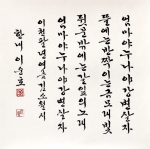 엄마야 누나야 강변 살자
뜰에는 반짝이는 금모래빛
뒷문 밖에는 갈잎의 노래
엄마야 누나야 강변 살자
이천팔년 여름 김소월 시
한내 이순호